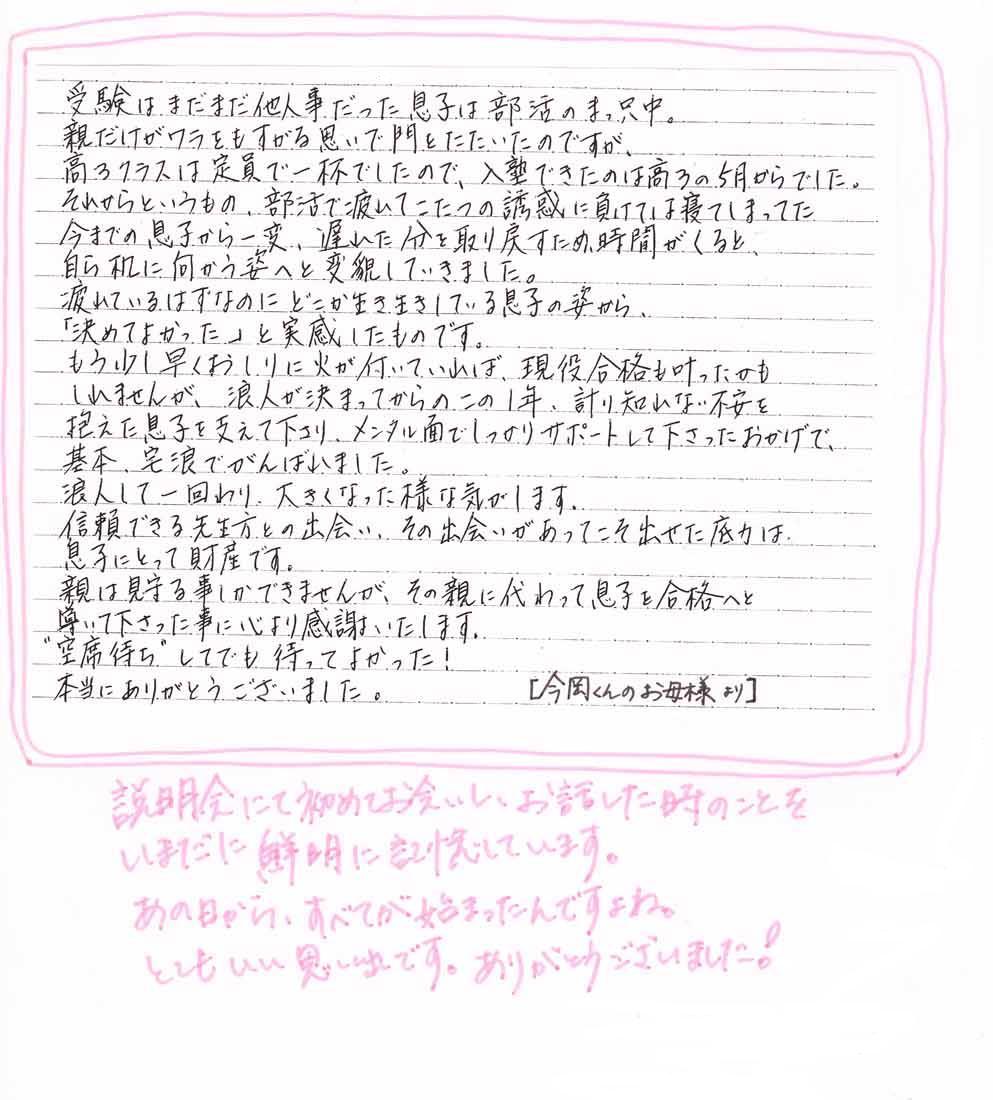 受験はまだまだ他人事だった息子は部活のまっ只中。
親だけがワラをもすがる思いで門をたたいたのですが、
高3クラスは定員で一杯でしたので、入塾できたのは高3の5月からでした。
それからというもの、部活で疲れてこたつの誘惑に負けては寝てしまってた
今までの息子から一変、遅れた分を取り戻すため、時間がくると、
自ら机に向かう姿へと変貌していきました。
疲れているはずなのにどこか生き生きしている息子の姿から、
「決めてよかった」と実感したものです。
もう少し早くおしりに火が付いていれば、現役合格も叶ったかも
しれませんが、浪人が決まってからのこの1年、計り知れない不安を
抱えた息子を支えて下さり、メンタル面でしっかりサポートして下さったおかげで、
基本、宅浪でがんばれました。
浪人して一回わり、大きくなった様な気がします。
信頼できる先生方との出会い、その出会いがあってこそ出せた底力は、
息子にとって財産です。
親は見守る事しかできませんが、その親に代わって息子を合格へと
導いて下さった事に心より感謝いたします。
"空席待ち"してでも待ってよかった!
本当にありがとうございました。 [今岡くんのお母様より]
説明会にて初めてお会いし、お話した時のことを
いまだに鮮明に記憶しています。
あの日から、すべてが始まったんですよね。
とてもいい思い出です。ありがとうございました!